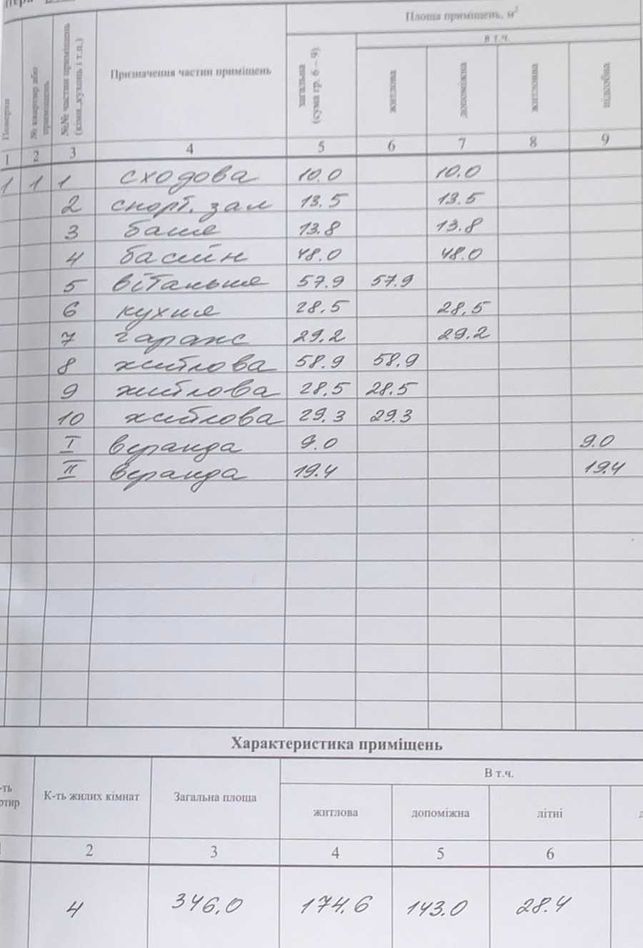 Площа приміщень, м²
в т.ч.
Поверхи
№ квартир або приміщень
№№ частин приміщень (кімн., кухонь і т.п.)
Призначення частин приміщень
загальна (сума гр. 6 – 9)
житлова
допоміжна
житлова
підсобна
1 2 3 4 5 6 7 8 9
1 1 1 сходова 10.0 10.0
2 спорт. зал 13.5 13.5
3 баня 13.8 13.8
4 басейн 48.0 48.0
5 вітальня 57.9 57.9
6 кухня 28.5 28.5
7 гараж 29.2 29.2
8 житлова 58.9 58.9
9 житлова 28.5 28.5
10 житлова 29.3 29.3
I веранда 9.0 9.0
II веранда 19.4 19.4
Характеристика приміщень
В т.ч.
К-ть жилих кімнат Загальна площа
житлова допоміжна літні
2 3 4 5 6
4 346,0 174.6 143.0 28.4